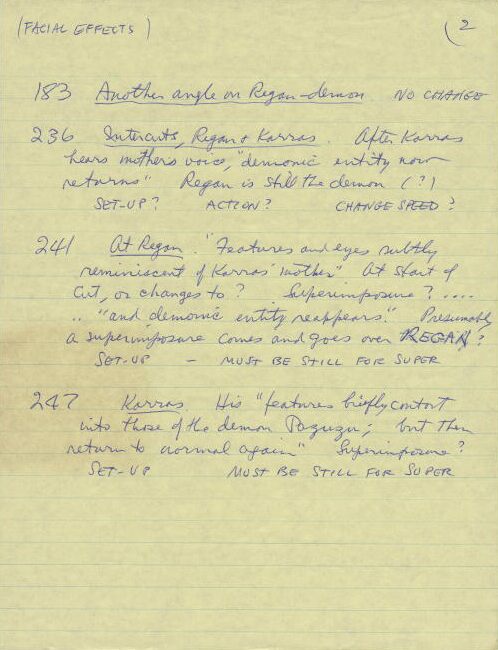 (FACIAL EFFECTS) 2
183 Another angle on Regan-demon NO CHANGE
236 Intercuts, Regan & Karras. After Karras
hears mother's voice, "demonic entity now
returns" Regan is still the demon (?)
SET-UP? ACTION? CHANGE SPEED?
241 At Regan. "Features and eyes subtly
reminiscent of Karras' mother" At start of
cut, or changes to? Superimposure? ....
.. "and demonic entity reappears." Presumably
a superimposure comes and goes over REGAN?
SET-UP - MUST BE STILL FOR SUPER
247 Karras His "features briefly contort
into those of the demon Pazuzu; but then
return to normal again" Superimposure?
SET-UP MUST BE STILL FOR SUPER